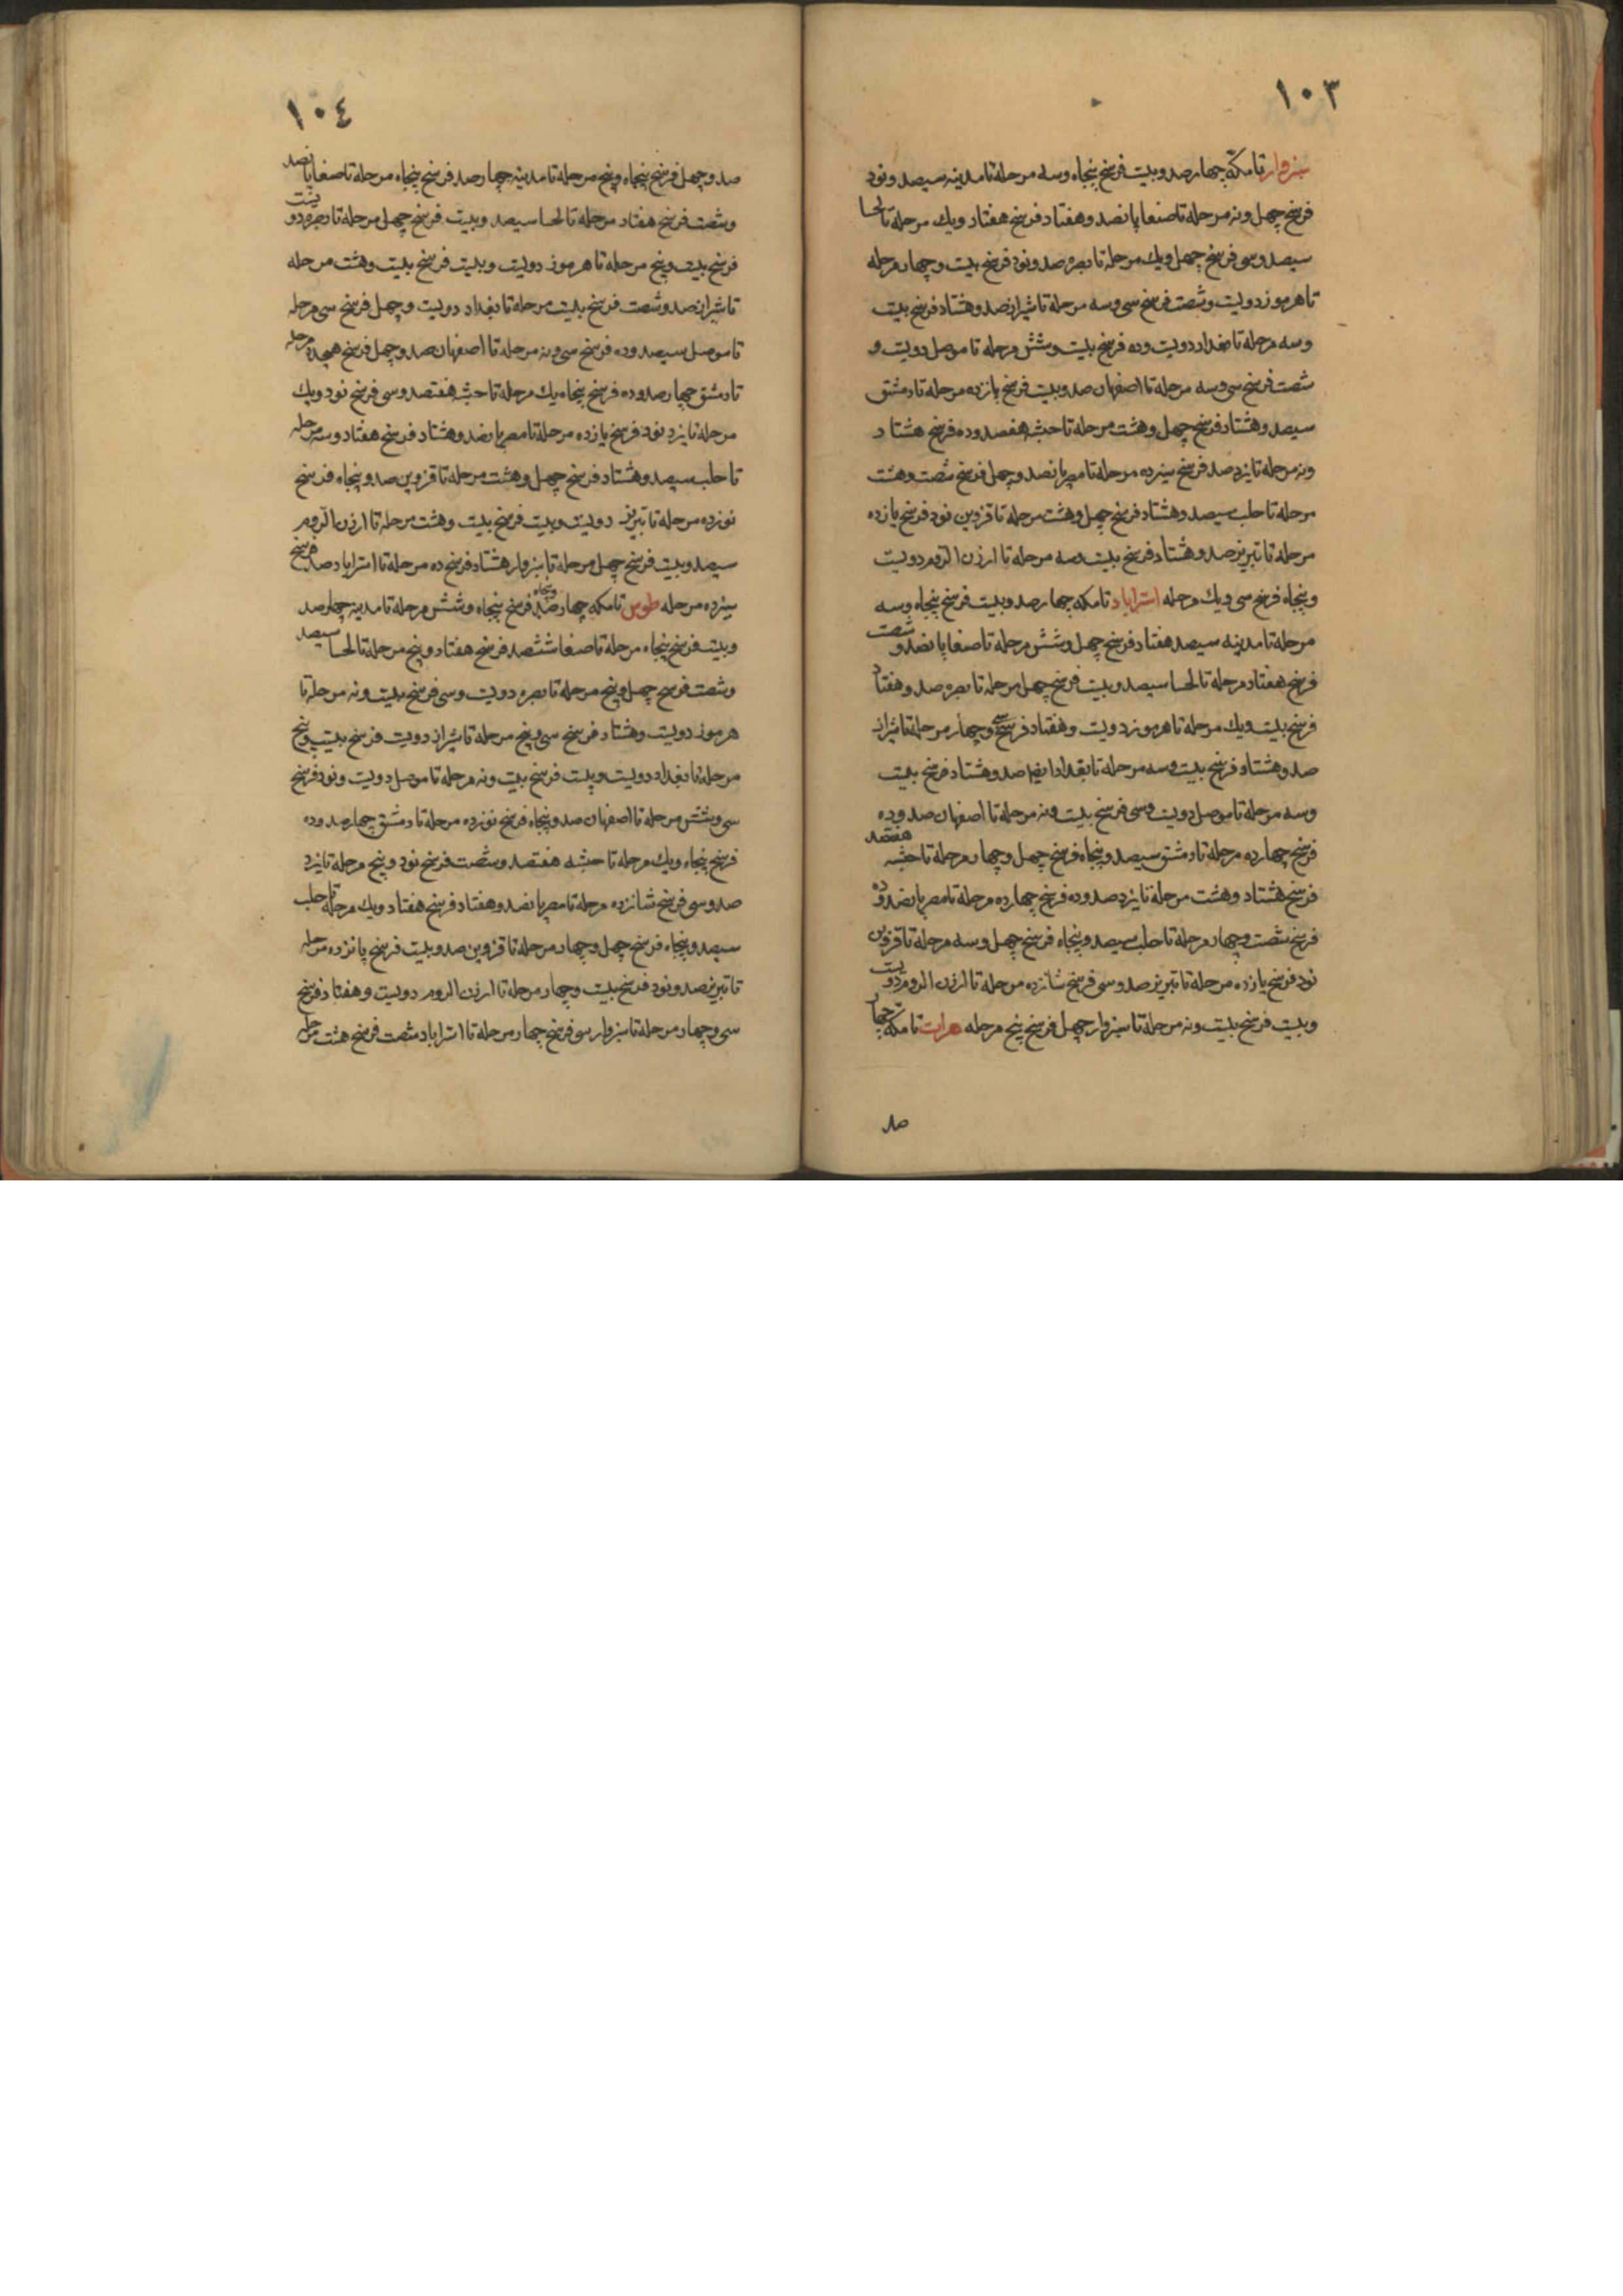 ١٠٣
سبزوار تا مکه چهارصد و بیست فرسخ پنجاه و سه مرحله تا مدینه سیصد و نود
فرسخ چهل و نه مرحله تا صنعا پانصد و هفتاد فرسخ هفتاد و یک مرحله تا لحسا
سیصد و سی فرسخ چهل و یک مرحله تا بصره صد و نود فرسخ بیست و چهار مرحله
تا هرموز دویست و شصت فرسخ سی و سه مرحله تا شیراز صد و هشتاد فرسخ بیست
و سه مرحله تا بغداد دویست و ده فرسخ بیست و شش مرحله تا موصل دویست و
شصت فرسخ سی و سه مرحله تا اصفهان صد و بیست فرسخ پازده مرحله تا دمشق
سیصد و هشتاد فرسخ چهل و هشت مرحله تا حبشه هفصد و ده فرسخ هشتاد
و نه مرحله تا یزد صد فرسخ سیزده مرحله تا مصر پانصد و چهل فرسخ شصت و هشت
مرحله تا حلب سیصد و هشتاد فرسخ چهل و هشت مرحله تا قزوین نود فرسخ یازده
مرحله تا تبریز صد و هشتاد فرسخ بیست و سه مرحله تا ارزن الروم دویست
و پنجاه فرسخ سی و یک مرحله استراباد تا مکه چهارصد و بیست فرسخ پنجاه و سه
مرحله تا مدینه سیصد هفتاد فرسخ چهل و شش مرحله تا صنعا پانصد و شصت
فرسخ هفتاد مرحله تا لحسا سیصد و بیست فرسخ چهل مرحله تا بصره صد و هفتاد
فرسخ بیست و یک مرحله تا هرموز دویست و هفتاد فرسخ سی و چهار مرحله تا شیراز
صد و هشتاد فرسخ بیست و سه مرحله تا بغداد ایضا صد و هشتاد فرسخ بیست
و سه مرحله تا موصل دویست و سی فرسخ بیست و نه مرحله تا اصفهان صد و ده
فرسخ چهارده مرحله تا دمشق سیصد و پنجاه فرسخ چهل و چهار مرحله تا حبشه هفتصد
فرسخ هشتاد و هشت مرحله تا یزد صد و ده فرسخ چهارده مرحله تا مصر پانصد و ده
فرسخ شصت و چهار مرحله تا حلب سیصد و پنجاه فرسخ چهل و سه مرحله تا قزوین
نود فرسخ یازده مرحله تا تبریز صد و سی فرسخ شانزده مرحله تا ارزن الروم دویست
و بیست فرسخ بیست و نه مرحله تا سبزوار چهل فرسخ پنج مرحله هرات تا مکه چهار
صد
١٠٤
صد و چهل فرسخ پنجاه و پنج مرحله تا مدینه چهارصد فرسخ پنجاه مرحله تا صنعا پانصد
و شصت فرسخ هفتاد مرحله تا لحسا سیصد و بیست فرسخ چهل مرحله تا بصره دویست
فرسخ بیست و پنج مرحله تا هرموز دویست و بیست فرسخ بیست و هشت مرحله
تا شیراز صد و شصت فرسخ بیست مرحله تا بغداد دویست و چهل فرسخ سی مرحله
تا موصل سیصد و ده فرسخ سی و نه مرحله تا اصفهان صد و چهل فرسخ هجده مرحله
تا دمشق چهارصد و ده فرسخ پنجاه یک مرحله تا حبشه هفتصد و سی فرسخ نود و یک
مرحله تا یزد نود فرسخ یازده مرحله تا مصر پانصد و هشتاد فرسخ هفتاد و سه مرحله
تا حلب سیصد و هشتاد فرسخ چهل و هشت مرحله تا قزوین صد و پنجاه فرسخ
نوزده مرحله تا تبریز دویست و بیست فرسخ بیست و هشت مرحله تا ارزن الروم
سیصد و بیست فرسخ چهل مرحله تا سبزوار هشتاد فرسخ ده مرحله تا استراباد صد فرسخ
سیزده مرحله طوس تا مکه چهارصد و پنجاه فرسخ پنجاه و شش مرحله تا مدینه چهارصد
و بیست فرسخ پنجاه مرحله تا صنعا ششصد فرسخ هفتاد و پنج مرحله تا لحسا سیصد
و شصت فرسخ چهل و پنج مرحله تا بصره دویست و سی فرسخ بیست و نه مرحله تا
هرموز دویست و هشتاد فرسخ سی و پنج مرحله تا شیراز دویست فرسخ بیست و پنج
مرحله تا بغداد دویست و بیست فرسخ بیست و نه مرحله تا موصل دویست و نود فرسخ
سی و شش مرحله تا اصفهان صد و پنجاه فرسخ نوزده مرحله تا دمشق چهارصد و ده
فرسخ پنجاه و یک مرحله تا حبشه هفتصد و شصت فرسخ نود و پنج مرحله تا یزد
صد و سی فرسخ شانزده مرحله تا مصر پانصد و هفتاد فرسخ هفتاد و یک مرحله تا حلب
سیصد و پنجاه فرسخ چهل و چهار مرحله تا قزوین صد و بیست فرسخ پانزده مرحله
تا تبریز صد و نود فرسخ بیست و چهار مرحله تا ارزن الروم دویست و هفتاد فرسخ
سی و چهار مرحله تا سبزوار سی فرسخ چهار مرحله تا استراباد شصت فرسخ هشت مرحله